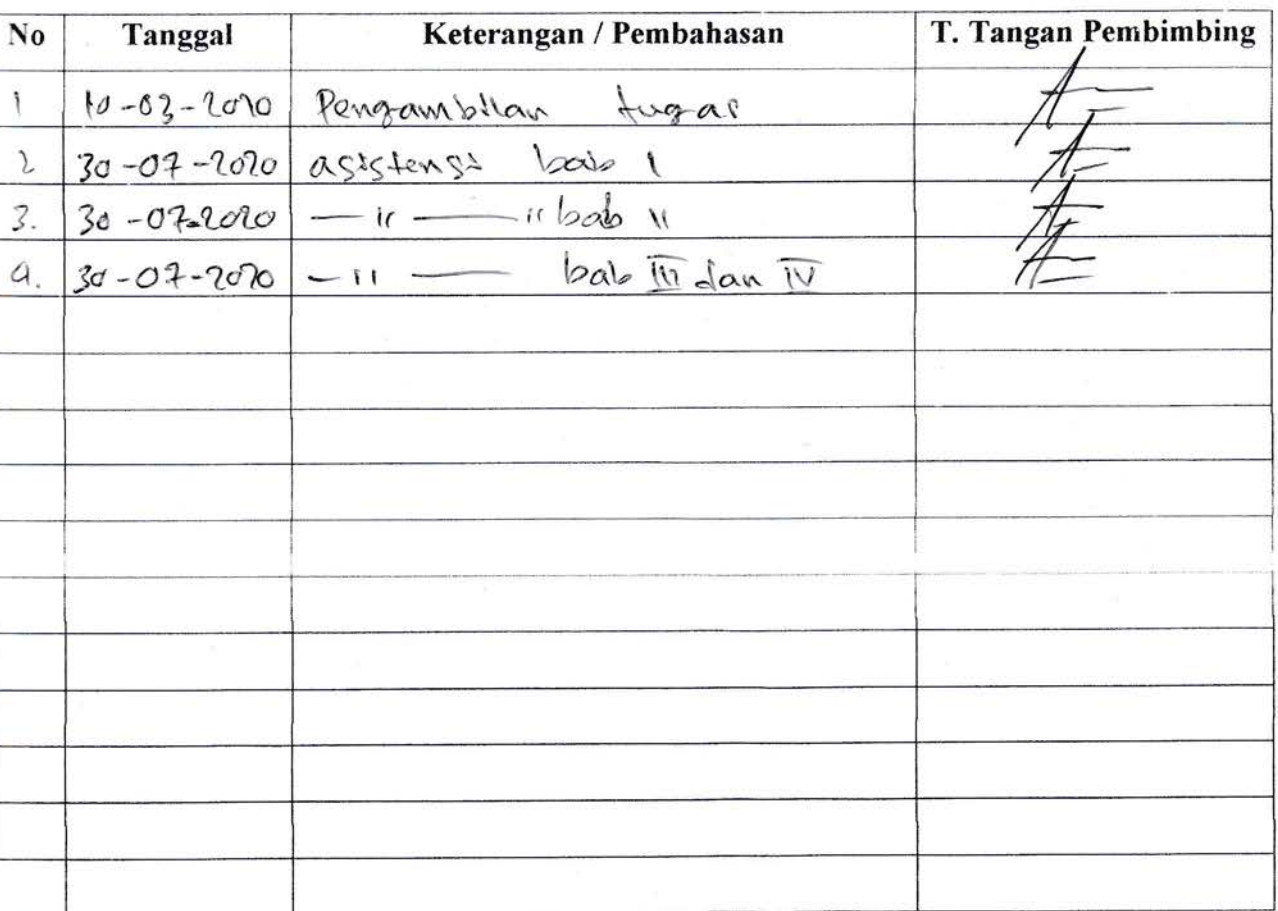 No Tanggal Keterangan / Pembahasan T. Tangan Pembimbing
1 10-03-2020 Pengambilan tugas
2 30-07-2020 asistensi bab I
3. 30-07-2020 — ıı — ıı bab II
4. 30-07-2020 — ıı — bab III dan IV